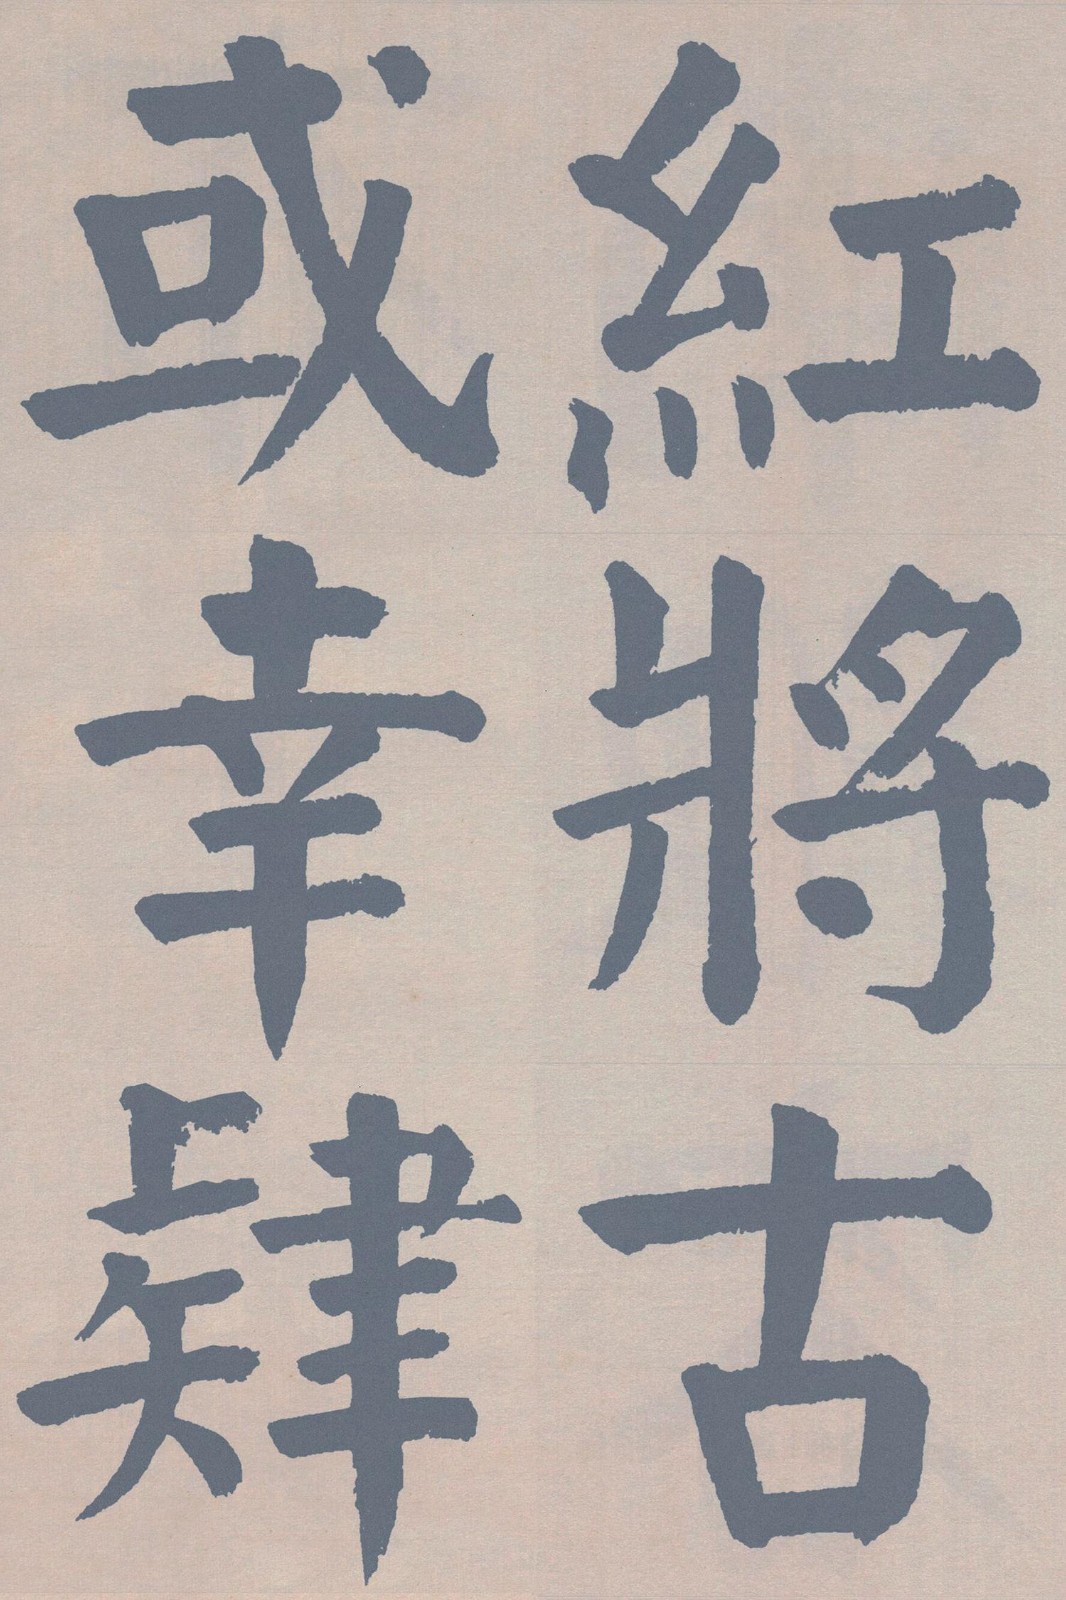 紅將古
或幸肄